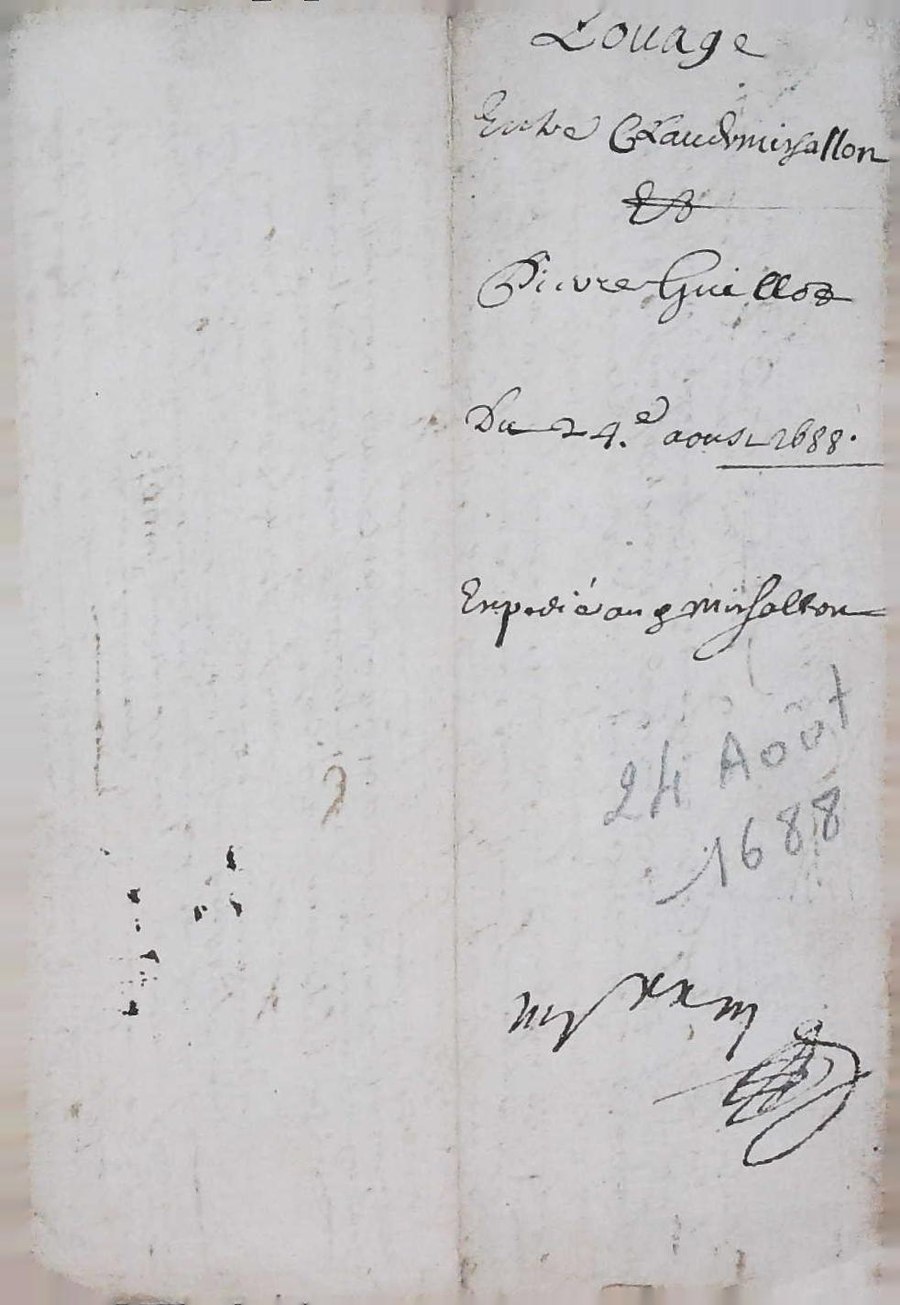 Louage
Entre Claude mishallon
Et
Pierre Guillot
Du 24.e aoust 1688.
Expedié aud mishallon
24 Août
1688